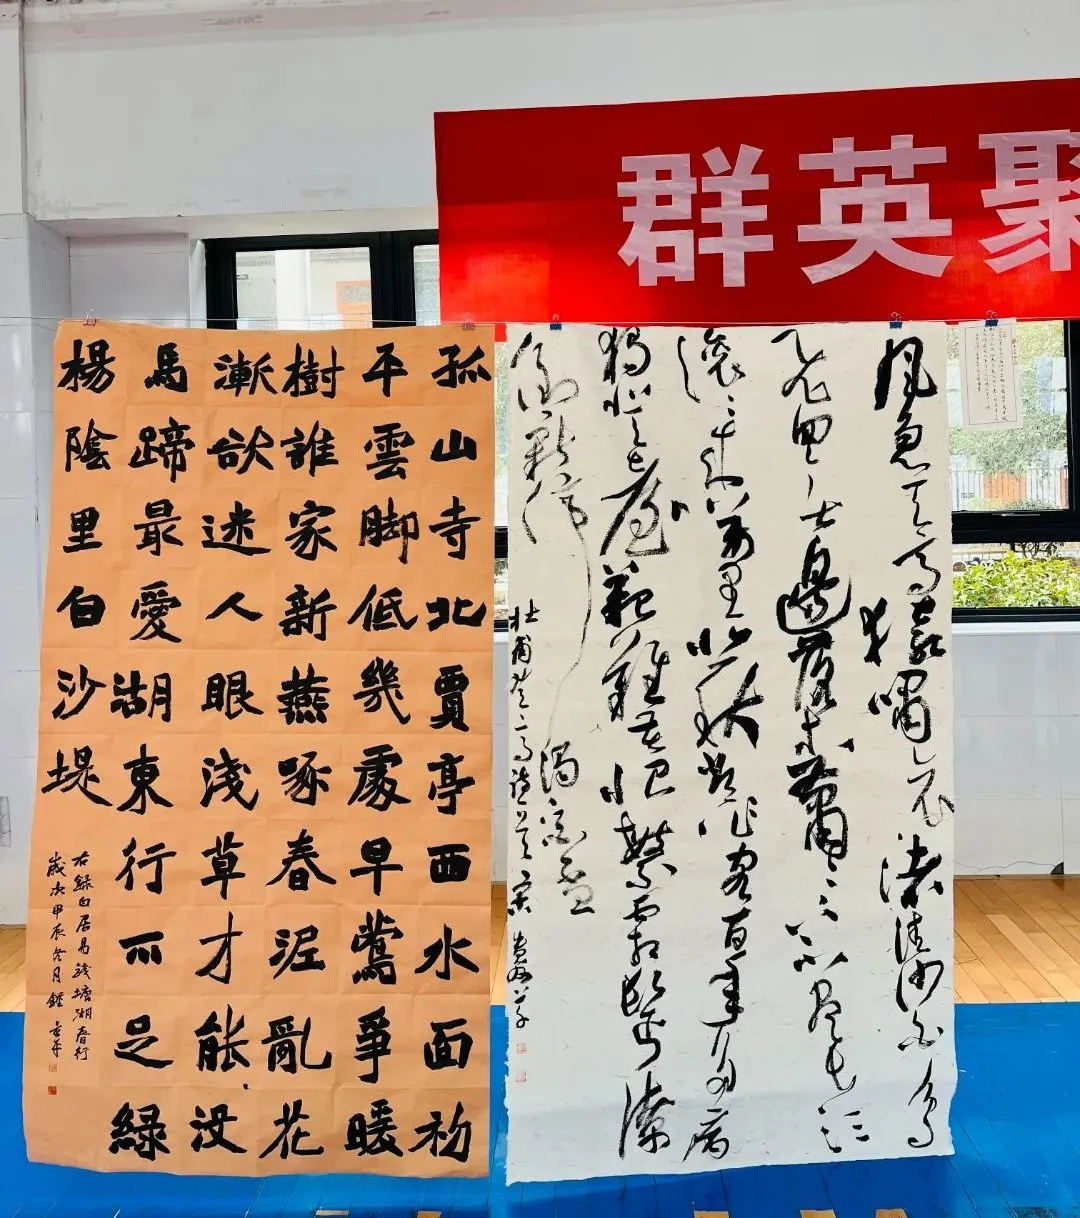 群英聚
孤山寺北賈亭西水面初
平雲脚低幾處早鶯爭暖
樹誰家新燕啄春泥亂花
漸欲迷人眼淺草才能没
馬蹄最愛湖東行不足綠
楊陰里白沙堤
右録白居易錢塘湖春行
歲次甲辰冬月
風急天高猿嘯哀渚清沙白鳥
飛回無邊落木蕭〻下不盡長江
滚〻來萬里悲秋常作客百年多病
獨登臺艱難苦恨繁霜鬢潦
倒新停
濁酒杯
杜甫登高詩